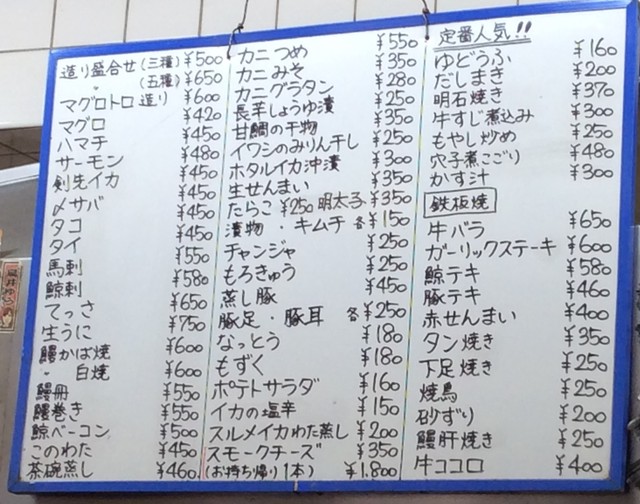 造り盛合せ (三種) ¥500
〃 (五種) ¥650
マグロトロ造り ¥600
マグロ ¥420
ハマチ ¥450
サーモン ¥480
剣先イカ ¥450
〆サバ ¥450
タコ ¥450
タイ ¥450
馬刺 ¥550
鯨刺 ¥580
てっさ ¥650
生うに ¥750
鰻かば焼 ¥600
〃 白焼 ¥600
鰻冊 ¥550
鰻巻き ¥550
鯨ベーコン ¥500
このわた ¥450
茶碗蒸し ¥460
カニつめ ¥550
カニみそ ¥350
カニグラタン ¥280
長芋しょうゆ漬 ¥250
甘鯛の干物 ¥350
イワシのみりん干し ¥250
ホタルイカ沖漬 ¥300
生せんまい ¥350
たらこ ¥250 明太子 ¥350
漬物・キムチ 各¥150
チャンジャ ¥250
もろきゅう ¥250
蒸し豚 ¥450
豚足・豚耳 各¥250
なっとう ¥180
もずく ¥180
ポテトサラダ ¥160
イカの塩辛 ¥150
スルメイカわた蒸し ¥200
スモークチーズ ¥350
(お持ち帰り1本) ¥1,800
定番人気!!
ゆどうふ ¥160
だしまき ¥200
明石焼き ¥370
牛すじ煮込み ¥300
もやし炒め ¥250
穴子煮こごり ¥480
かす汁 ¥300
鉄板焼
牛バラ ¥650
ガーリックステーキ ¥600
鯨テキ ¥580
豚テキ ¥460
赤せんまい ¥400
タン焼き ¥350
下足焼き ¥250
焼鳥 ¥250
砂ずり ¥200
鰻肝焼き ¥250
牛ココロ ¥400